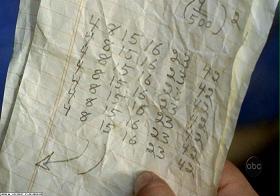 4 8 15 16 23 42
4 8 15 16 23 42
4 8 15 16 23 42
4 8 15 16 23 42
4 8 15 16 23 42
4 8 15 16 23 42
abc